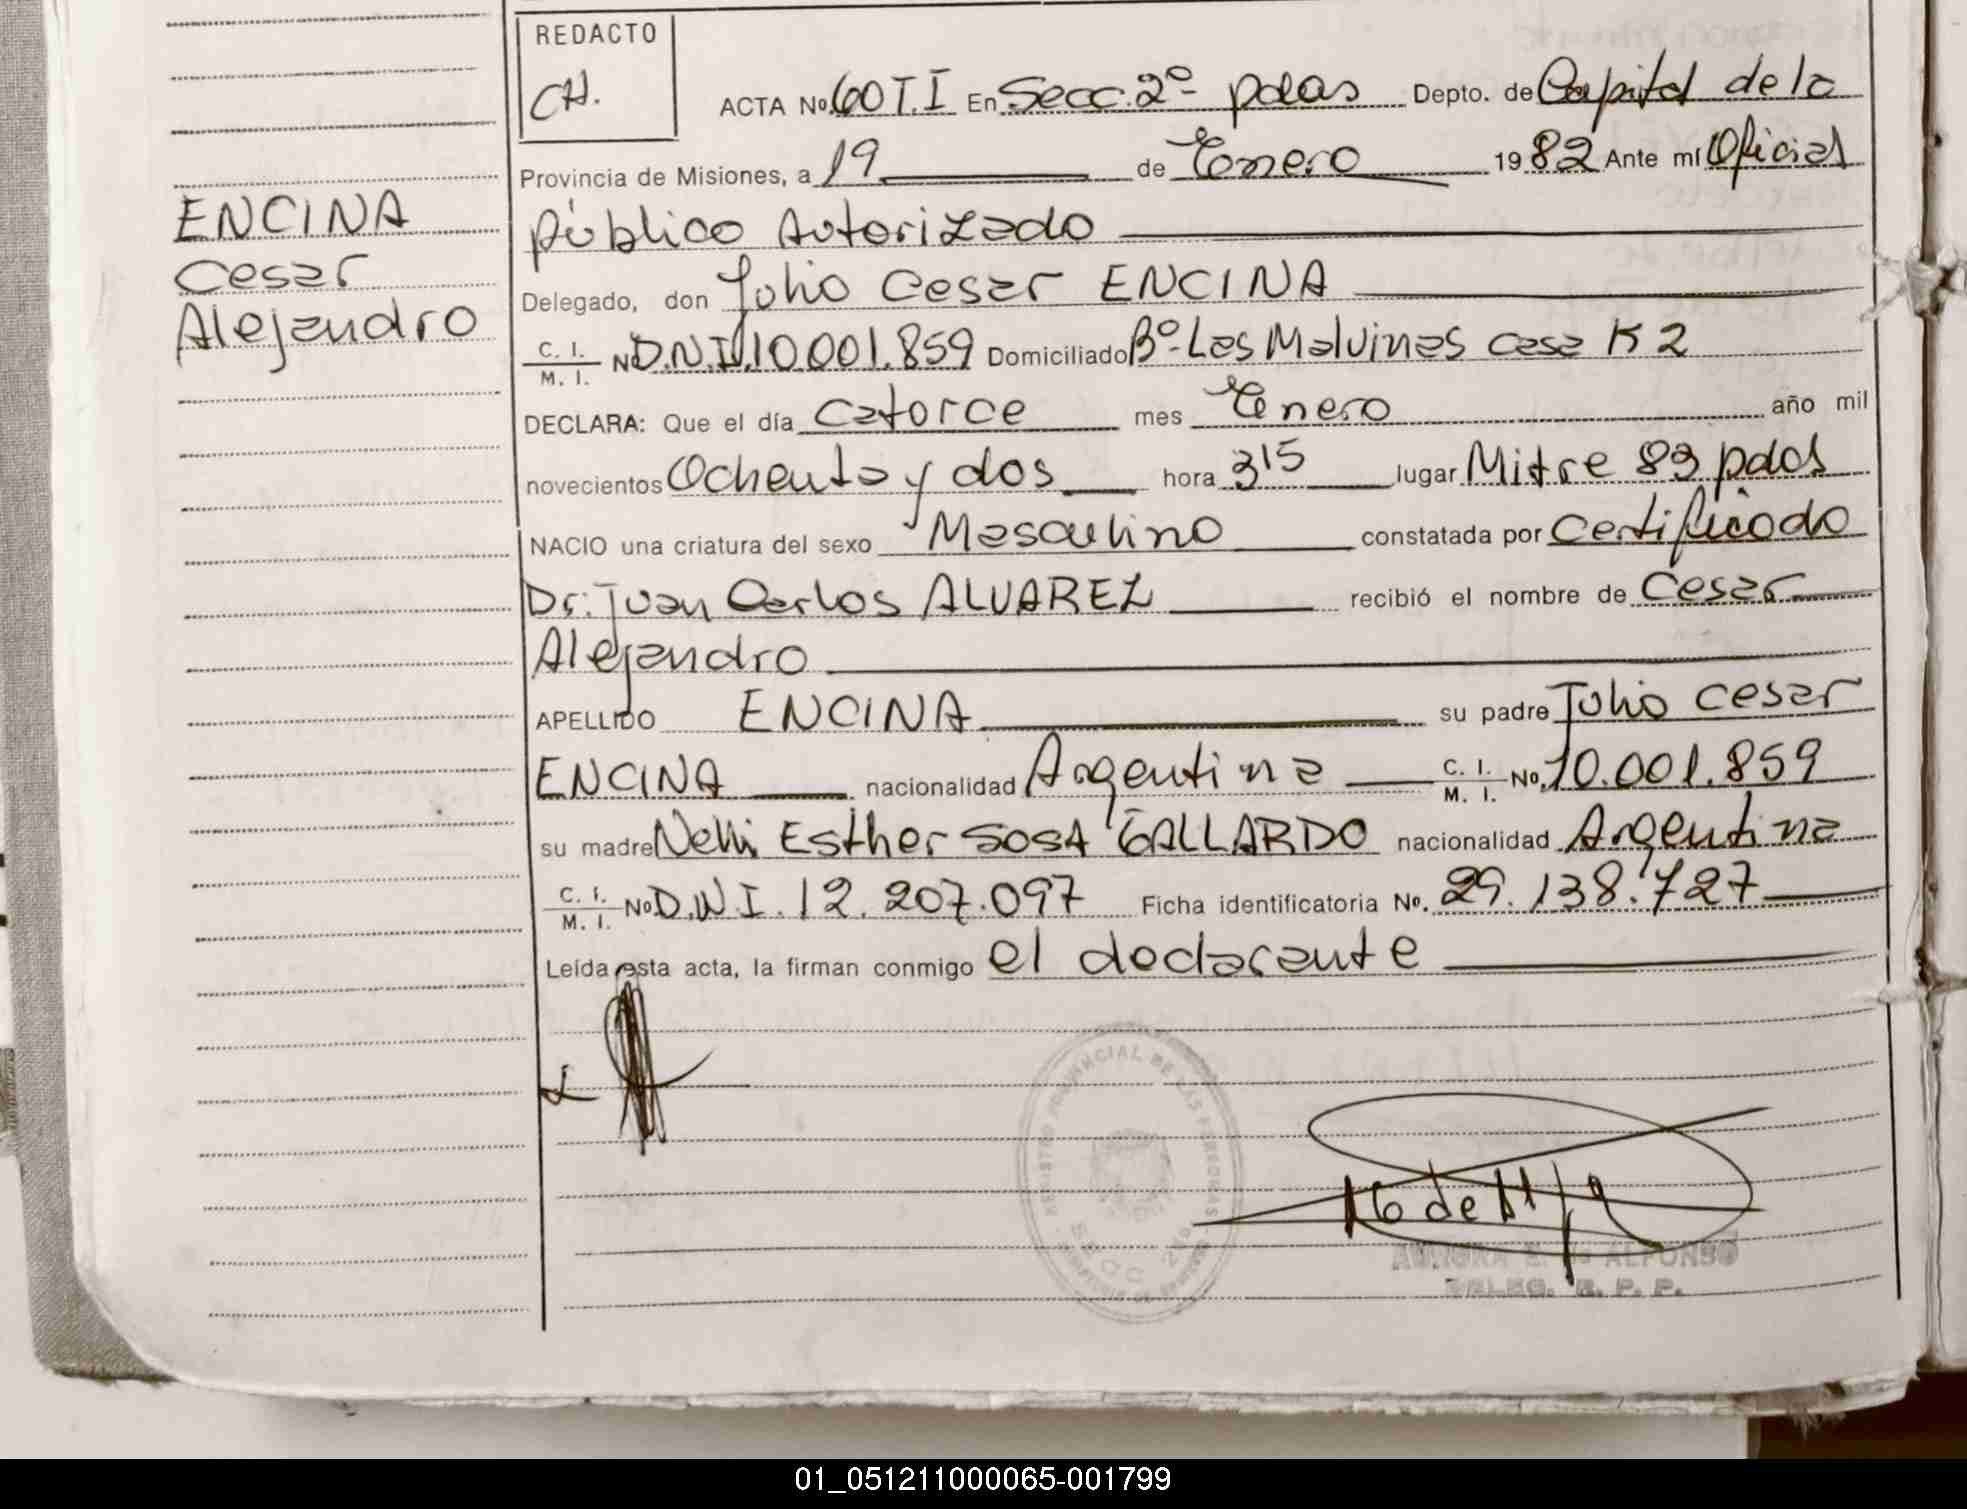 REDACTO
CH.
ACTA No. 60 T.I En Secc. 2º pdas Depto. de Capital de la
Provincia de Misiones, a 19 de Enero 1982 Ante mí Oficial
Público Autorizado
ENCINA
Cesar
Alejandro
Delegado, don Julio Cesar ENCINA
C. I. / M. I. No D.N.I. 10.001.859 Domiciliado Bº Las Malvinas casa K 2
DECLARA: Que el día catorce mes Enero año mil
novecientos Ochenta y dos hora 315 lugar Mitre 83 pdas
NACIO una criatura del sexo Masculino constatada por Certificado
Dr: Juan Carlos ALVAREZ recibió el nombre de Cesar
Alejandro
APELLIDO ENCINA su padre Julio Cesar
ENCINA nacionalidad Argentina C. I. / M. I. No. 10.001.859
su madre Nelli Esther SOSA GALLARDO nacionalidad Argentina
C. I. / M. I. No D.N.I. 12.207.097 Ficha identificatoria No. 29.138.727
Leída esta acta, la firman conmigo el declarante
REGISTRO PROVINCIAL DE LAS PERSONAS
SECC 2da
ALFONSO
DELEG. R. P. P.
01_051211000065-001799